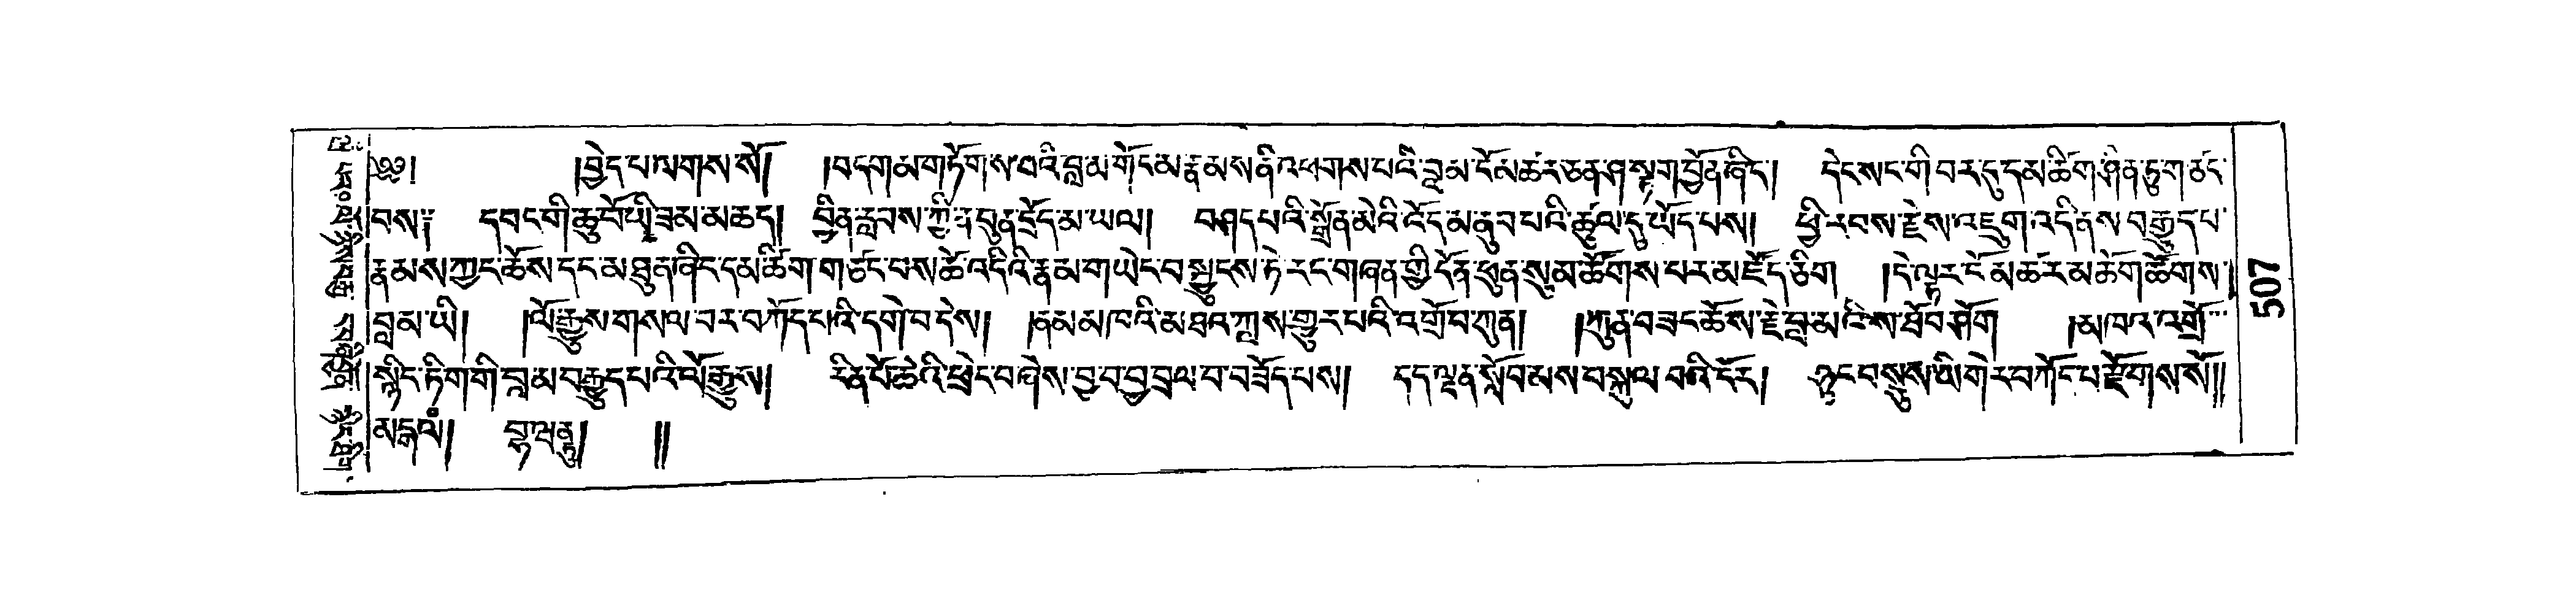 ༄༅། །བྱེད་པ་ལགས་སོ། །བདག་མ་གཏོགས་པའི་བླ་མ་གོང་མ་རྣམས་ནི་འཕགས་པའི་བླ་མ་ངོ་མཚར་ཅན་ཤ་སྟག་བྱོན་ཞིང་། དེང་སང་གི་བར་དུ་དམ་ཚིག་ཤིན་ཏུ་གཙང་
བས༔ དབང་གི་ཆུ་བོ་ཡི་ཟམ་མ་ཆད། བྱིན་རླབས་ཀྱི་ན་བུན་དྲོད་མ་ཡལ། བཤད་པའི་སྒྲོན་མེའི་འོད་མ་ནུབ་པའི་ཚུལ་དུ་ཡོད་པས། ཕྱི་རབས་རྗེས་འཇུག་འདི་ནས་བརྒྱུད་པ་
རྣམས་ཀྱང་ཆོས་དང་མཐུན་ཞིང་དམ་ཚིག་གཙང་བས་ཚེ་འདིའི་རྣམ་གཡེང་བ་སྤྱངས་ཏེ་རང་གཞན་གྱི་དོན་ཕུན་སུམ་ཚོགས་པར་མཛོད་ཅིག །དེ་ལྟར་ངོ་མཚར་མཆོག་ཚོགས་
བླ་མ་ཡི། །ལོ་རྒྱུས་གསལ་བར་བཀོད་པའི་དགེ་བ་དེས། །ནམ་མཁའི་མཐའ་ཀླས་གྱུར་པའི་འགྲོ་བ་ཀུན། །ཀུན་བཟང་ཆོས་རྗེ་བླ་མ་ངེས་ཐོབ་ཤོག །མཁའ་འགྲོ་
སྙིང་ཏིག་གི་བླ་མ་བརྒྱུད་པའི་ལོ་རྒྱུས། རིན་པོ་ཆེའི་ཕྲེང་བ་ཞེས་བྱ་བ་བྱ་བྲལ་བ་བཟོད་པས། དད་ལྡན་སློབ་མས་བསྐུལ་བའི་དོར། ཉུང་བསྡུས་ཡི་གེར་བཀོད་པ་རྫོགས་སོ།།
མངྒ་ལཾ། བྷ་ཝནྟུ། །།